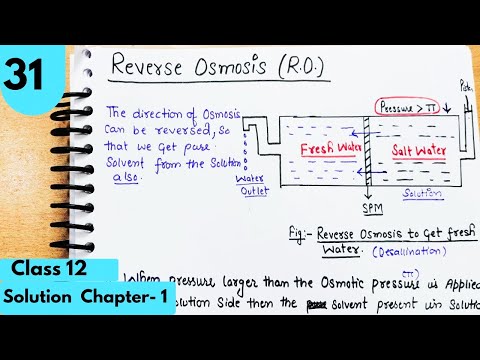 31
Reverse Osmosis (R.O.)
The direction of Osmosis
Can be reversed, so
that we Get pure
Solvent from the Solution
also.
Pressure > π
Fresh Water
Salt Water
Water
Outlet
Solution
SPM
Fig:- Reverse Osmosis to Get fresh
Water. (Desalination)
Class 12
Solution Chapter-1
When pressure larger than the Osmotic pressure (π) is Applied
Solution Side then the Solvent present in Solution